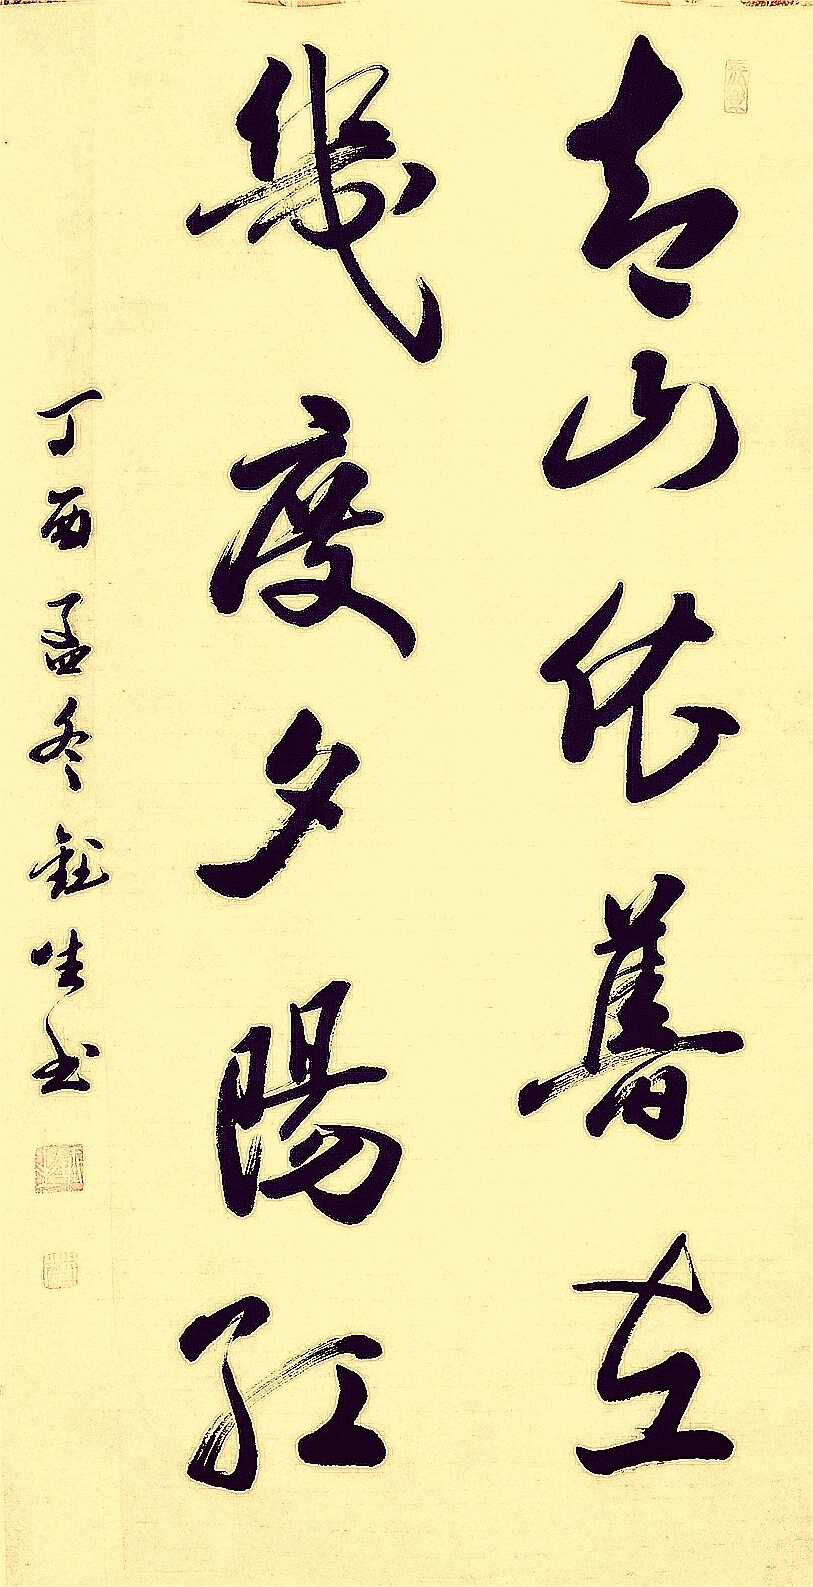 青山依舊在
幾度夕陽紅
丁酉孟冬 生书